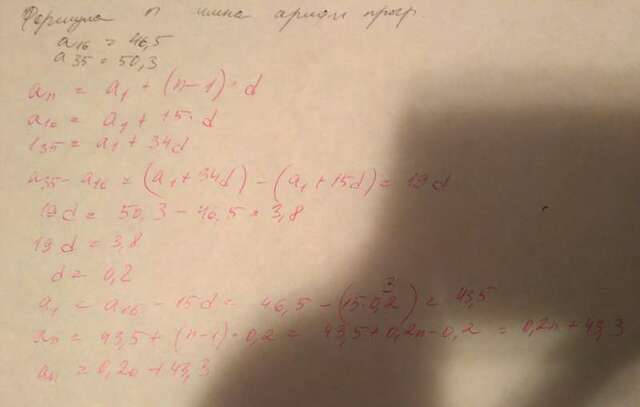 Формула n члена арифм прогр.
a16 = 46,5
a35 = 50,3
an = a1 + (n-1)·d
a16 = a1 + 15·d
a35 = a1 + 34d
a35 - a16 = (a1 + 34d) - (a1 + 15d) = 19d
19d = 50,3 - 46,5 = 3,8
19d = 3,8
d = 0,2
a1 = a16 - 15d = 46,5 - (15·0,2) = 43,5
3
an = 43,5 + (n-1)·0,2 = 43,5 + 0,2n - 0,2 = 0,2n + 43,3
an = 0,2n + 43,3